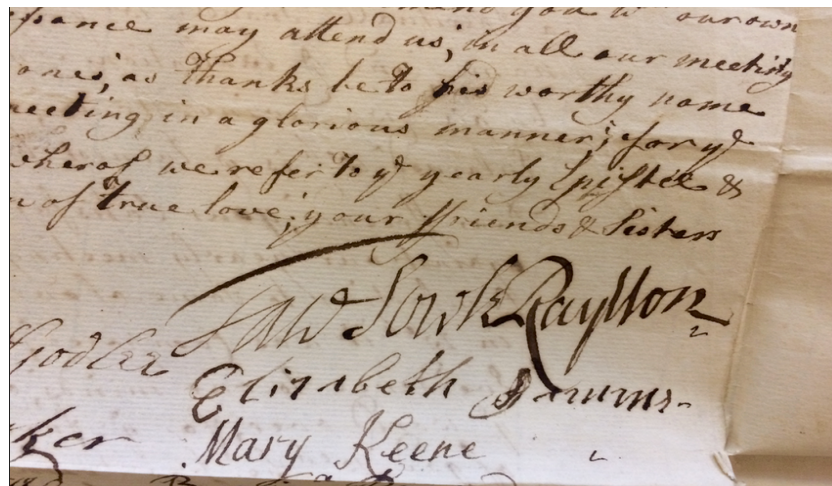 our own
may attend us, in all our meeting
ones, as thanks be to his worthy name
meeting in a glorious manner; for yᵉ
wherof we refer to yᵉ yearly Epistle &
of true love; your ffriends & Sisters
Tace Sowle Raylton
Elizabeth
Mary Keene